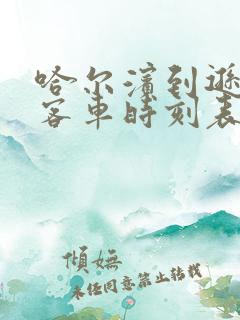 哈尔滨到逊
客车时刻表
倾妩
未经同意禁止转载